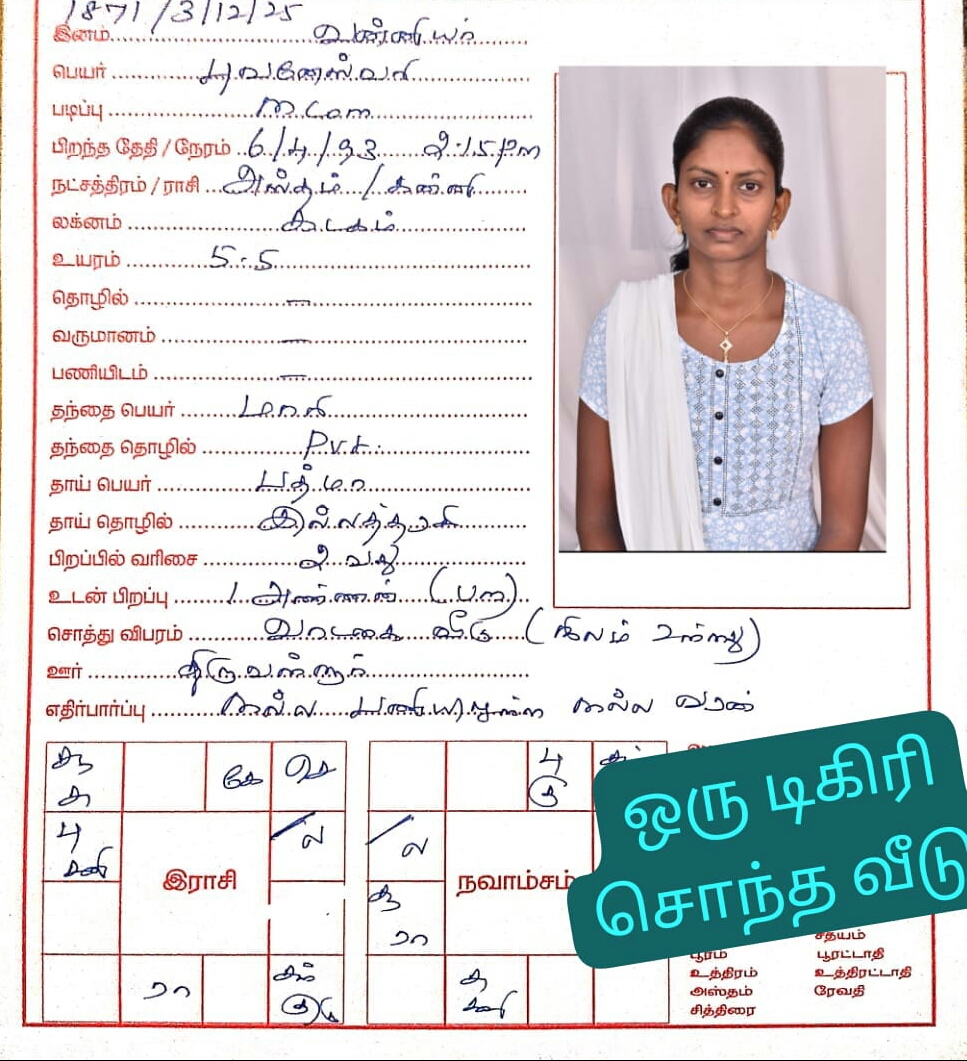 1871/3/12/25
இனம் வன்னியர்
பெயர் புவனேஸ்வரி
படிப்பு M.Com
பிறந்த தேதி / நேரம் 6/4/93 2.15 Pm
நட்சத்திரம் / ராசி அஸ்தம் / கன்னி
லக்னம் கடகம்
உயரம் 5.5
தொழில் —
வருமானம் —
பணியிடம் —
தந்தை பெயர் மாரி
தந்தை தொழில் Pvt.
தாய் பெயர் பத்மா
தாய் தொழில் இல்லத்தரசி
பிறப்பில் வரிசை 2 வது
உடன் பிறப்பு 1 அண்ணன்
சொத்து விபரம் வாடகை வீடு (நிலம் உள்ளது)
ஊர் திருவள்ளூர்
எதிர்பார்ப்பு நல்ல பணியிலுள்ள நல்ல வரன்
சூ கே செ
பு சனி / ல
இராசி
ரா சந் குரு
பு கு
/ ல
சூ ரா
நவாம்சம்
ஒரு டிகிரி
சொந்த வீடு
பூரம் சதயம்
உத்திரம் பூரட்டாதி
அஸ்தம் உத்திரட்டாதி
சித்திரை ரேவதி